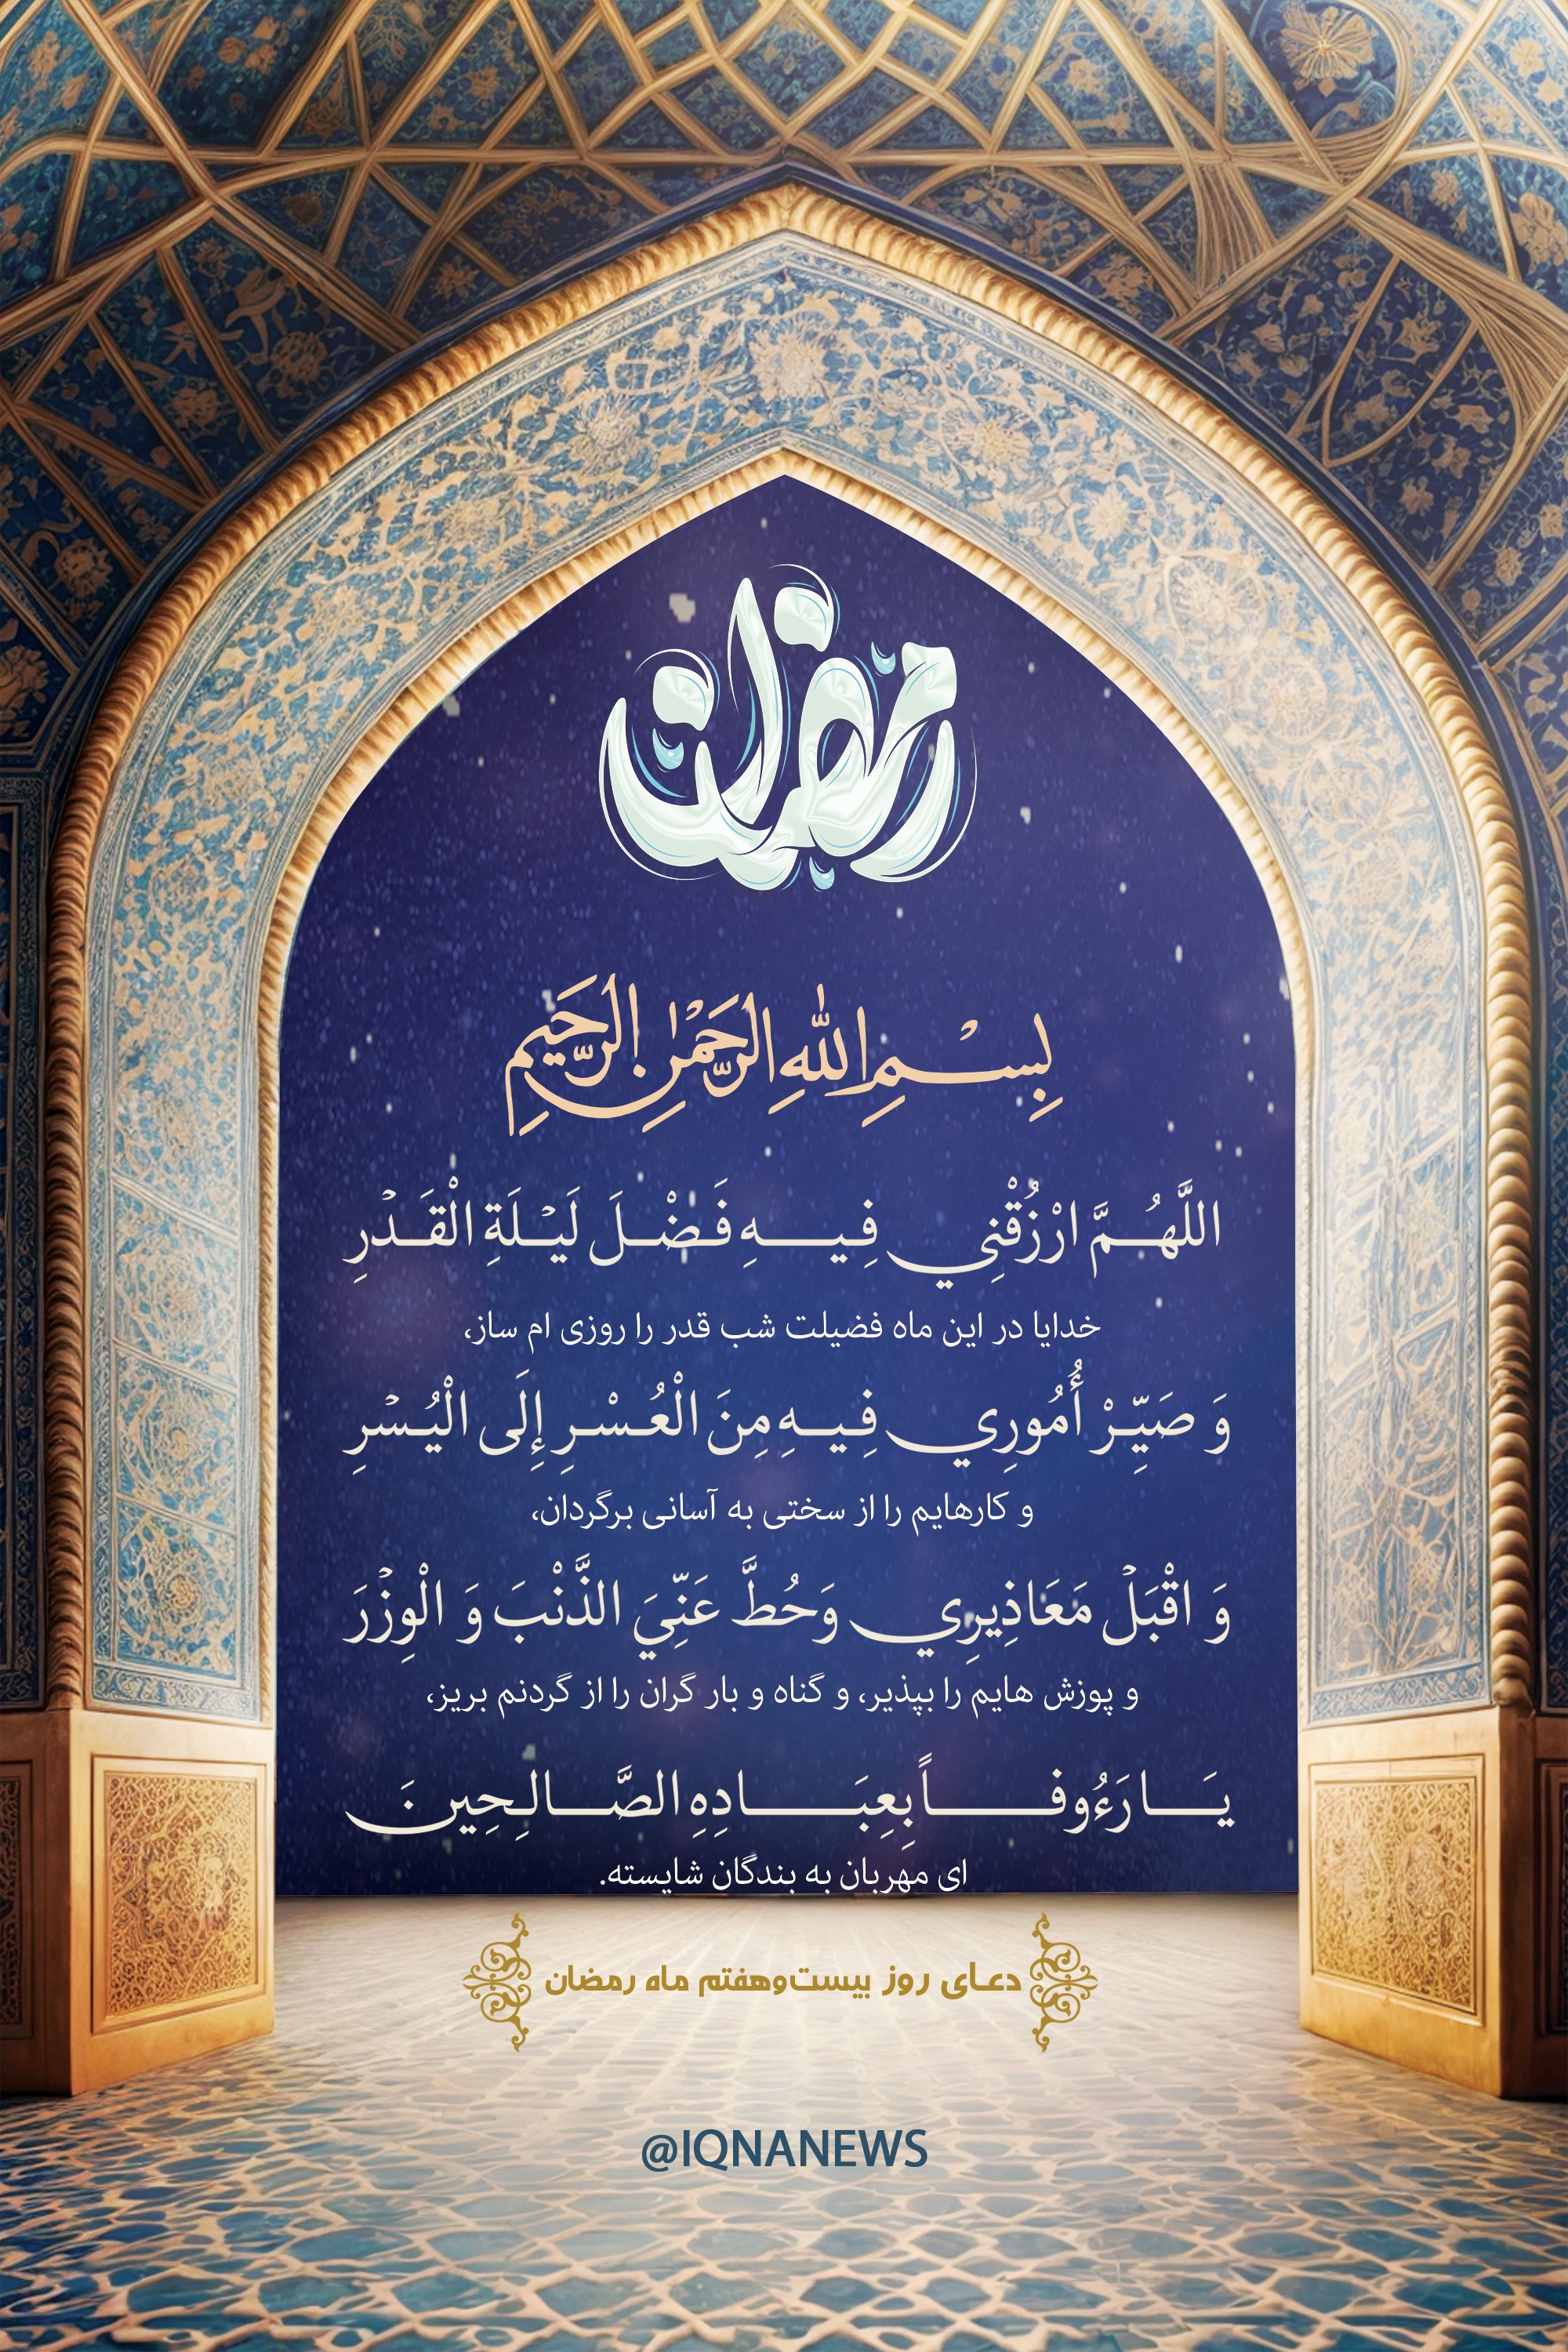 رمضان
بِسْمِ اللهِ الرَّحْمٰنِ الرَّحِيمِ
اللَّهُمَّ ارْزُقْنِي فِيهِ فَضْلَ لَيْلَةِ الْقَدْرِ
خدایا در این ماه فضیلت شب قدر را روزی ام ساز،
وَ صَيِّرْ أُمُورِي فِيهِ مِنَ الْعُسْرِ إِلَى الْيُسْرِ
و کارهایم را از سختی به آسانی برگردان،
وَ اقْبَلْ مَعَاذِيرِي وَحُطَّ عَنِّيَ الذَّنْبَ وَ الْوِزْرَ
و پوزش هایم را بپذیر، و گناه و بار گران را از گردنم بریز،
يَا رَءُوفاً بِعِبَادِهِ الصَّالِحِينَ
ای مهربان به بندگان شایسته.
دعای روز بیست‌وهفتم ماه رمضان
@IQNANEWS